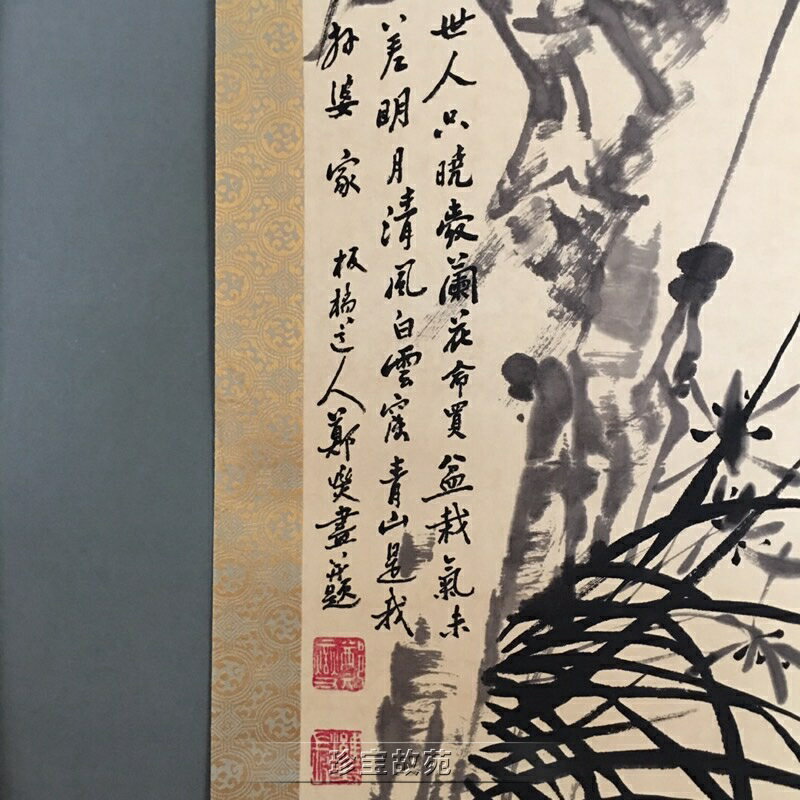 世人只曉愛蘭花市買盆栽氣未
差明月清風白雲窟青山是我
外婆家 板橋道人鄭燮畫并題
珍宝故苑